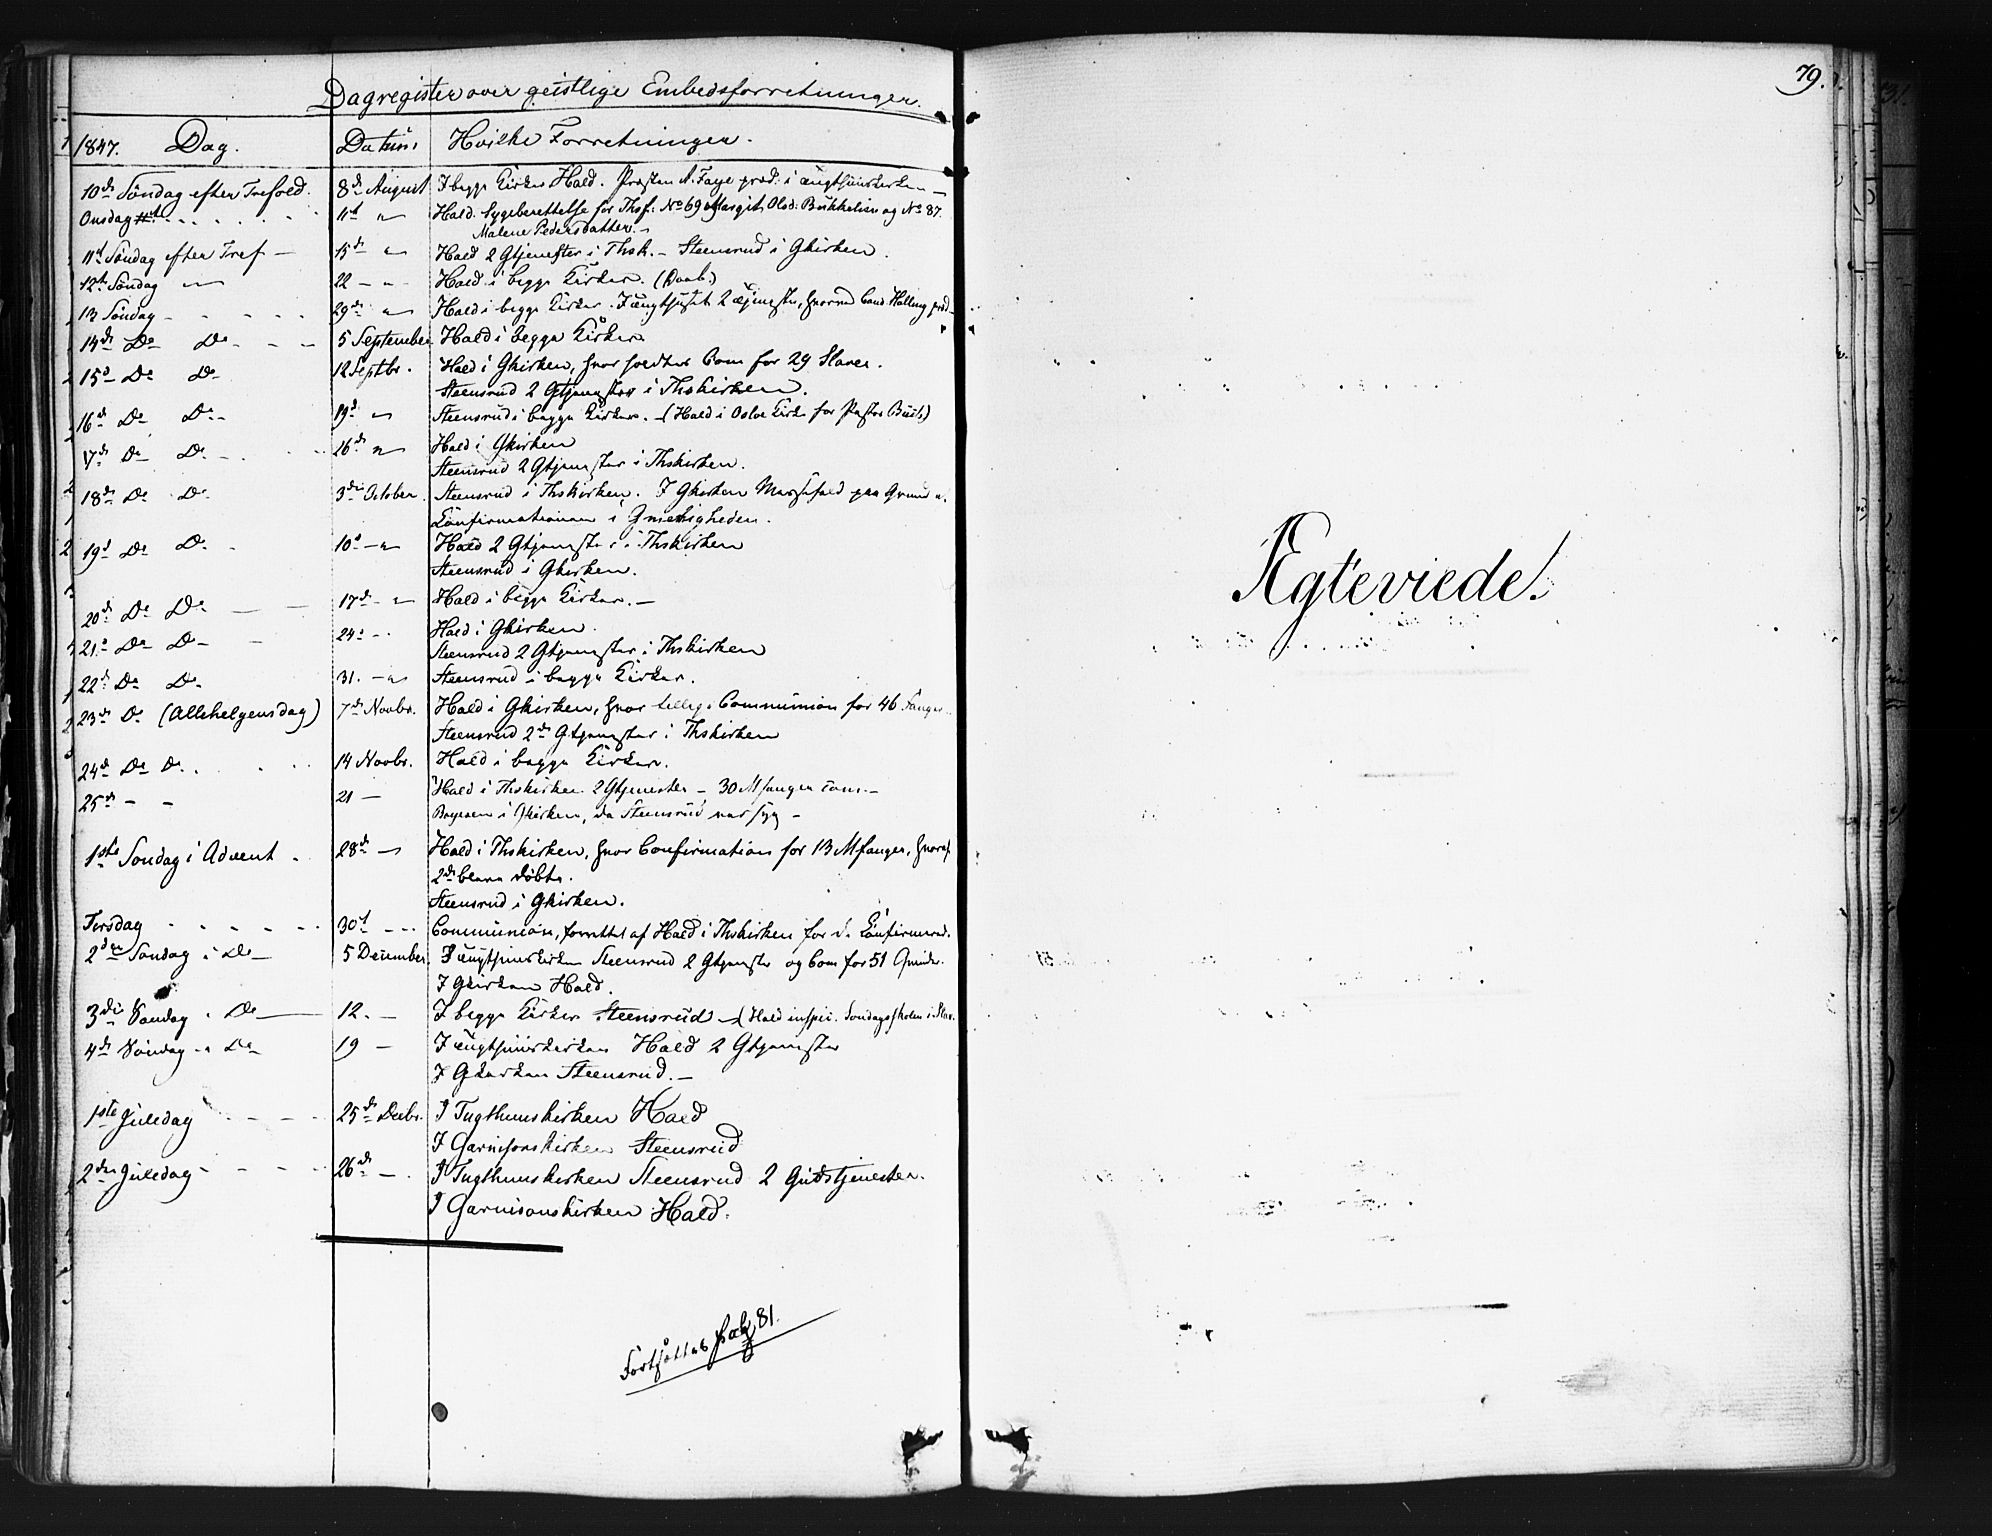 Dagregister over geistlige Embedsforretninger.
1847. Dag. Datum: Hvilke Forretninger.
10de Söndag efter Trefold. 8de August I begge Kirker Hald. Præsten A. Faye præd. i Tugthuuskirken
Onsdag 11te " Hald. Sygeberettelse for Thsf: No 69 Margit Olsd: Bukkelien og No 87.
Malene Pedersdatter.
11te Söndag efter Tref 15de " Hald 2 Gtjenester i Thsk. - Steensrud i Gkirken.
12te Söndag " 22 - " Hald i begge Kirker. (Daab.)
13 Söndag 29de " Hald i begge Kirker. I Tugthuset 2 Tjenester, hvorved Cand. Halling præd
14de Do Do 5 September Hald i begge Kirker
15de Do Do 12 Septbr. Hald i Gkirken, hvor holdtes Com for 29 Slaver.
Steensrud 2 Gtjenester i Thskirken.
16de Do Do 19de " Steensrud i begge Kirker. - (Hald i Oslo Kirke for Pastor)
17de Do Do 26de " Hald i Gkirken
Steensrud 2 Gtjenester i Thskirken.
18de Do Do 3die October. Steensrud i Thskirken. I Gkirken Messefald paa Grund a.
Confirmationen i Gmenigheden.
19de Do Do 10de - " Hald 2 Gtjenester i Thskirken
Steensrud i Gkirken.
20de Do Do 17de - " Hald i begge Kirker. -
21de Do Do 24de - Hald i Gkirken.
Steensrud 2 Gtjenester i Thskirken
22de Do Do 31. - " Steensrud i begge Kirker.
23de Do (Allehelgensdag) 7de Novbr. Hald i Gkirken, hvor tillige Communion for 46 Fanger
Steensrud 2de Gtjenester i Thskirken
24de Do Do 14 Novbr. Hald i begge Kirker.
25de - - 21 - Hald i Thskirken 2 Gtjenester - 30 Mfanger Com. -
i Gkirken, da Steensrud var syg -
1ste Söndag i Advent. 28de - Hald i Thskirken, hvor Confirmation for 13 Mfanger, hvoraf
2de bleve döbte.
Steensrud i Gkirken.
Tirsdag 30te - Communion, forrettet af Hald i Thskirken for de Confirmered.
2den Söndag i Do 5 December I Tugthuuskirken Steensrud 2 Gtjenester og Com for 51 Qvinder.
I Gkirken Hald.
3die Söndag i Do 12. - I begge Kirker Steensrud - (Hald inspic. Söndagsskolen i Slav.
4de Söndag i Do 19 - I Tugthuuskirken Hald 2 Gtjenester
I Gkirken Steensrud. -
1ste Juledag 25de Decbr. I Tugthuuskirken Hald
I Garnisonskirken Steensrud
2den Juledag 26de - I Tugthuuskirken Steensrud 2 Gudstjenester.
I Garnisonskirken Hald.
Fortsættes pag 81.
79.
Ægteviede!